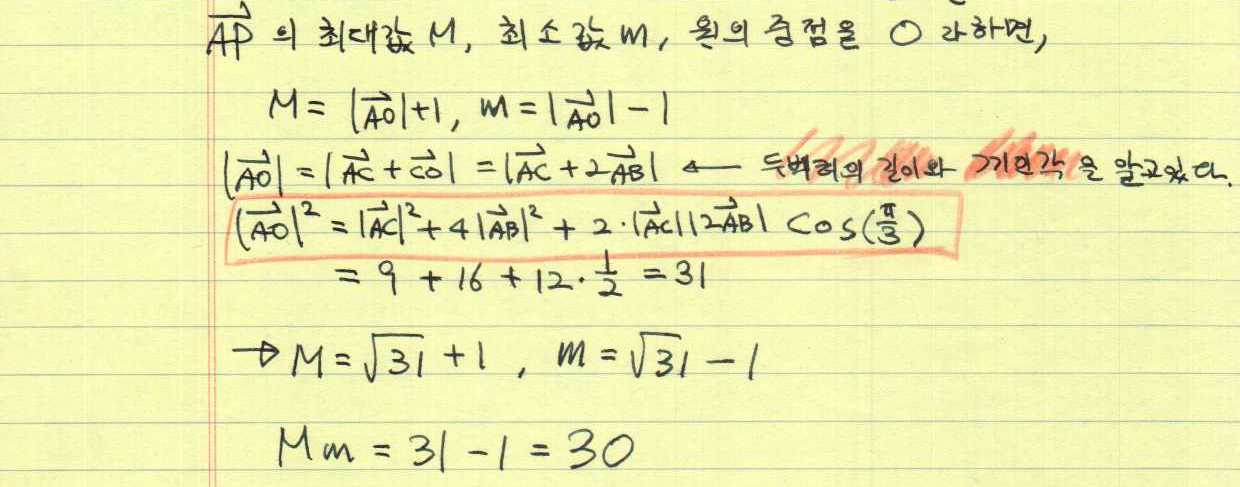 AP⃗ 의 최대값 M, 최소값 m, 원의 중점을 O 라하면,
M = |AO⃗|+1, m = |AO⃗| - 1
|AO⃗| = |AC⃗ + CO⃗| = |AC⃗ + 2AB⃗| ← 두벡터의 길이와 끼인각을 알고있다.
|AO⃗|² = |AC⃗|² + 4|AB⃗|² + 2·|AC⃗||2AB⃗| cos(π/3)
= 9 + 16 + 12·1/2 = 31
→ M = √31 + 1, m = √31 - 1
Mm = 31 - 1 = 30